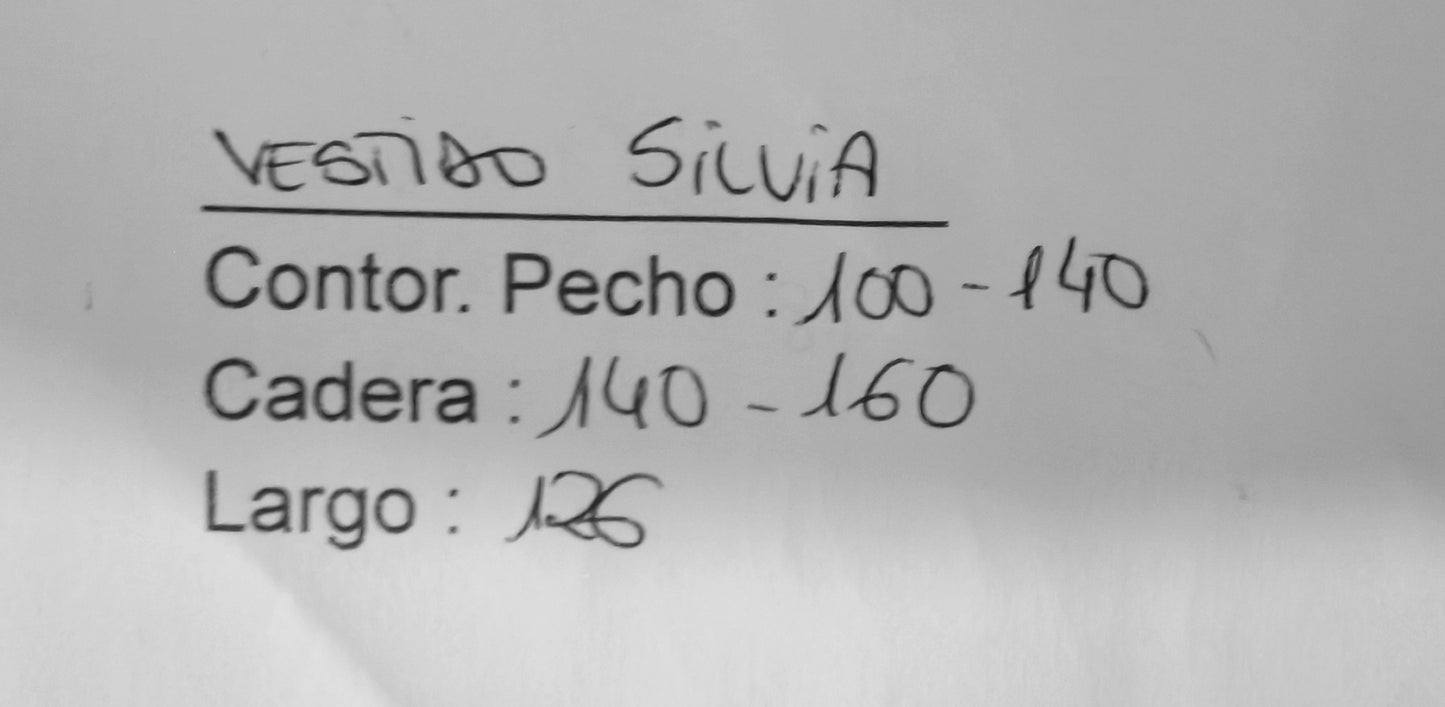 VESTIDO SiLViA
Contor. Pecho : 100 - 140
Cadera : 140 - 160
Largo : 126